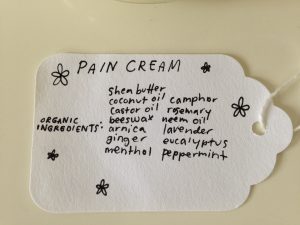 PAIN CREAM
shea butter
coconut oil camphor
castor oil rosemary
ORGANIC INGREDIENTS: beeswax neem oil
arnica lavender
ginger eucalyptus
menthol peppermint